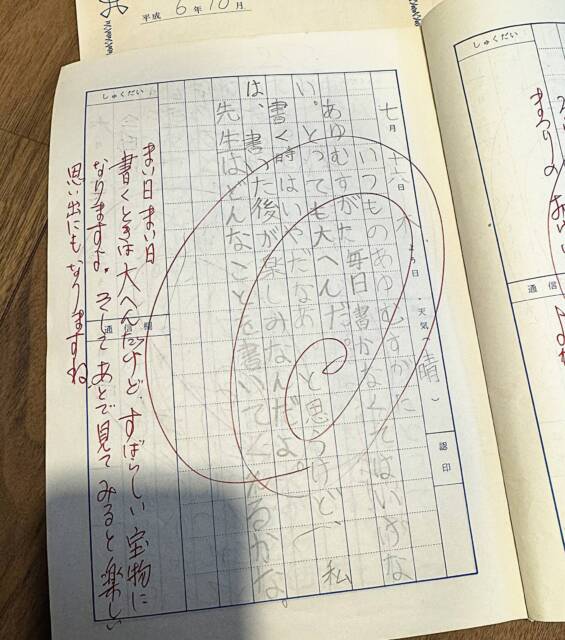 平成 6年 10月
七月十六日 木よう日 天気(晴)
いつものあゆむすがた
あゆむすがた毎日書かなくてはいけな
い。とっても大へんだ。
書く時はいやだなあ と思うけど、私
は、書いた後が楽しみなんだよ。
先生はどんなことを書いてくれるかな。
認印
しゅくだい
通信欄
まい日まい日
書くときは大へんだけど、すばらしい宝物に
なりますよ。そしてあとで見てみると楽しい
思い出にもなりますね
しゅくだい
通信